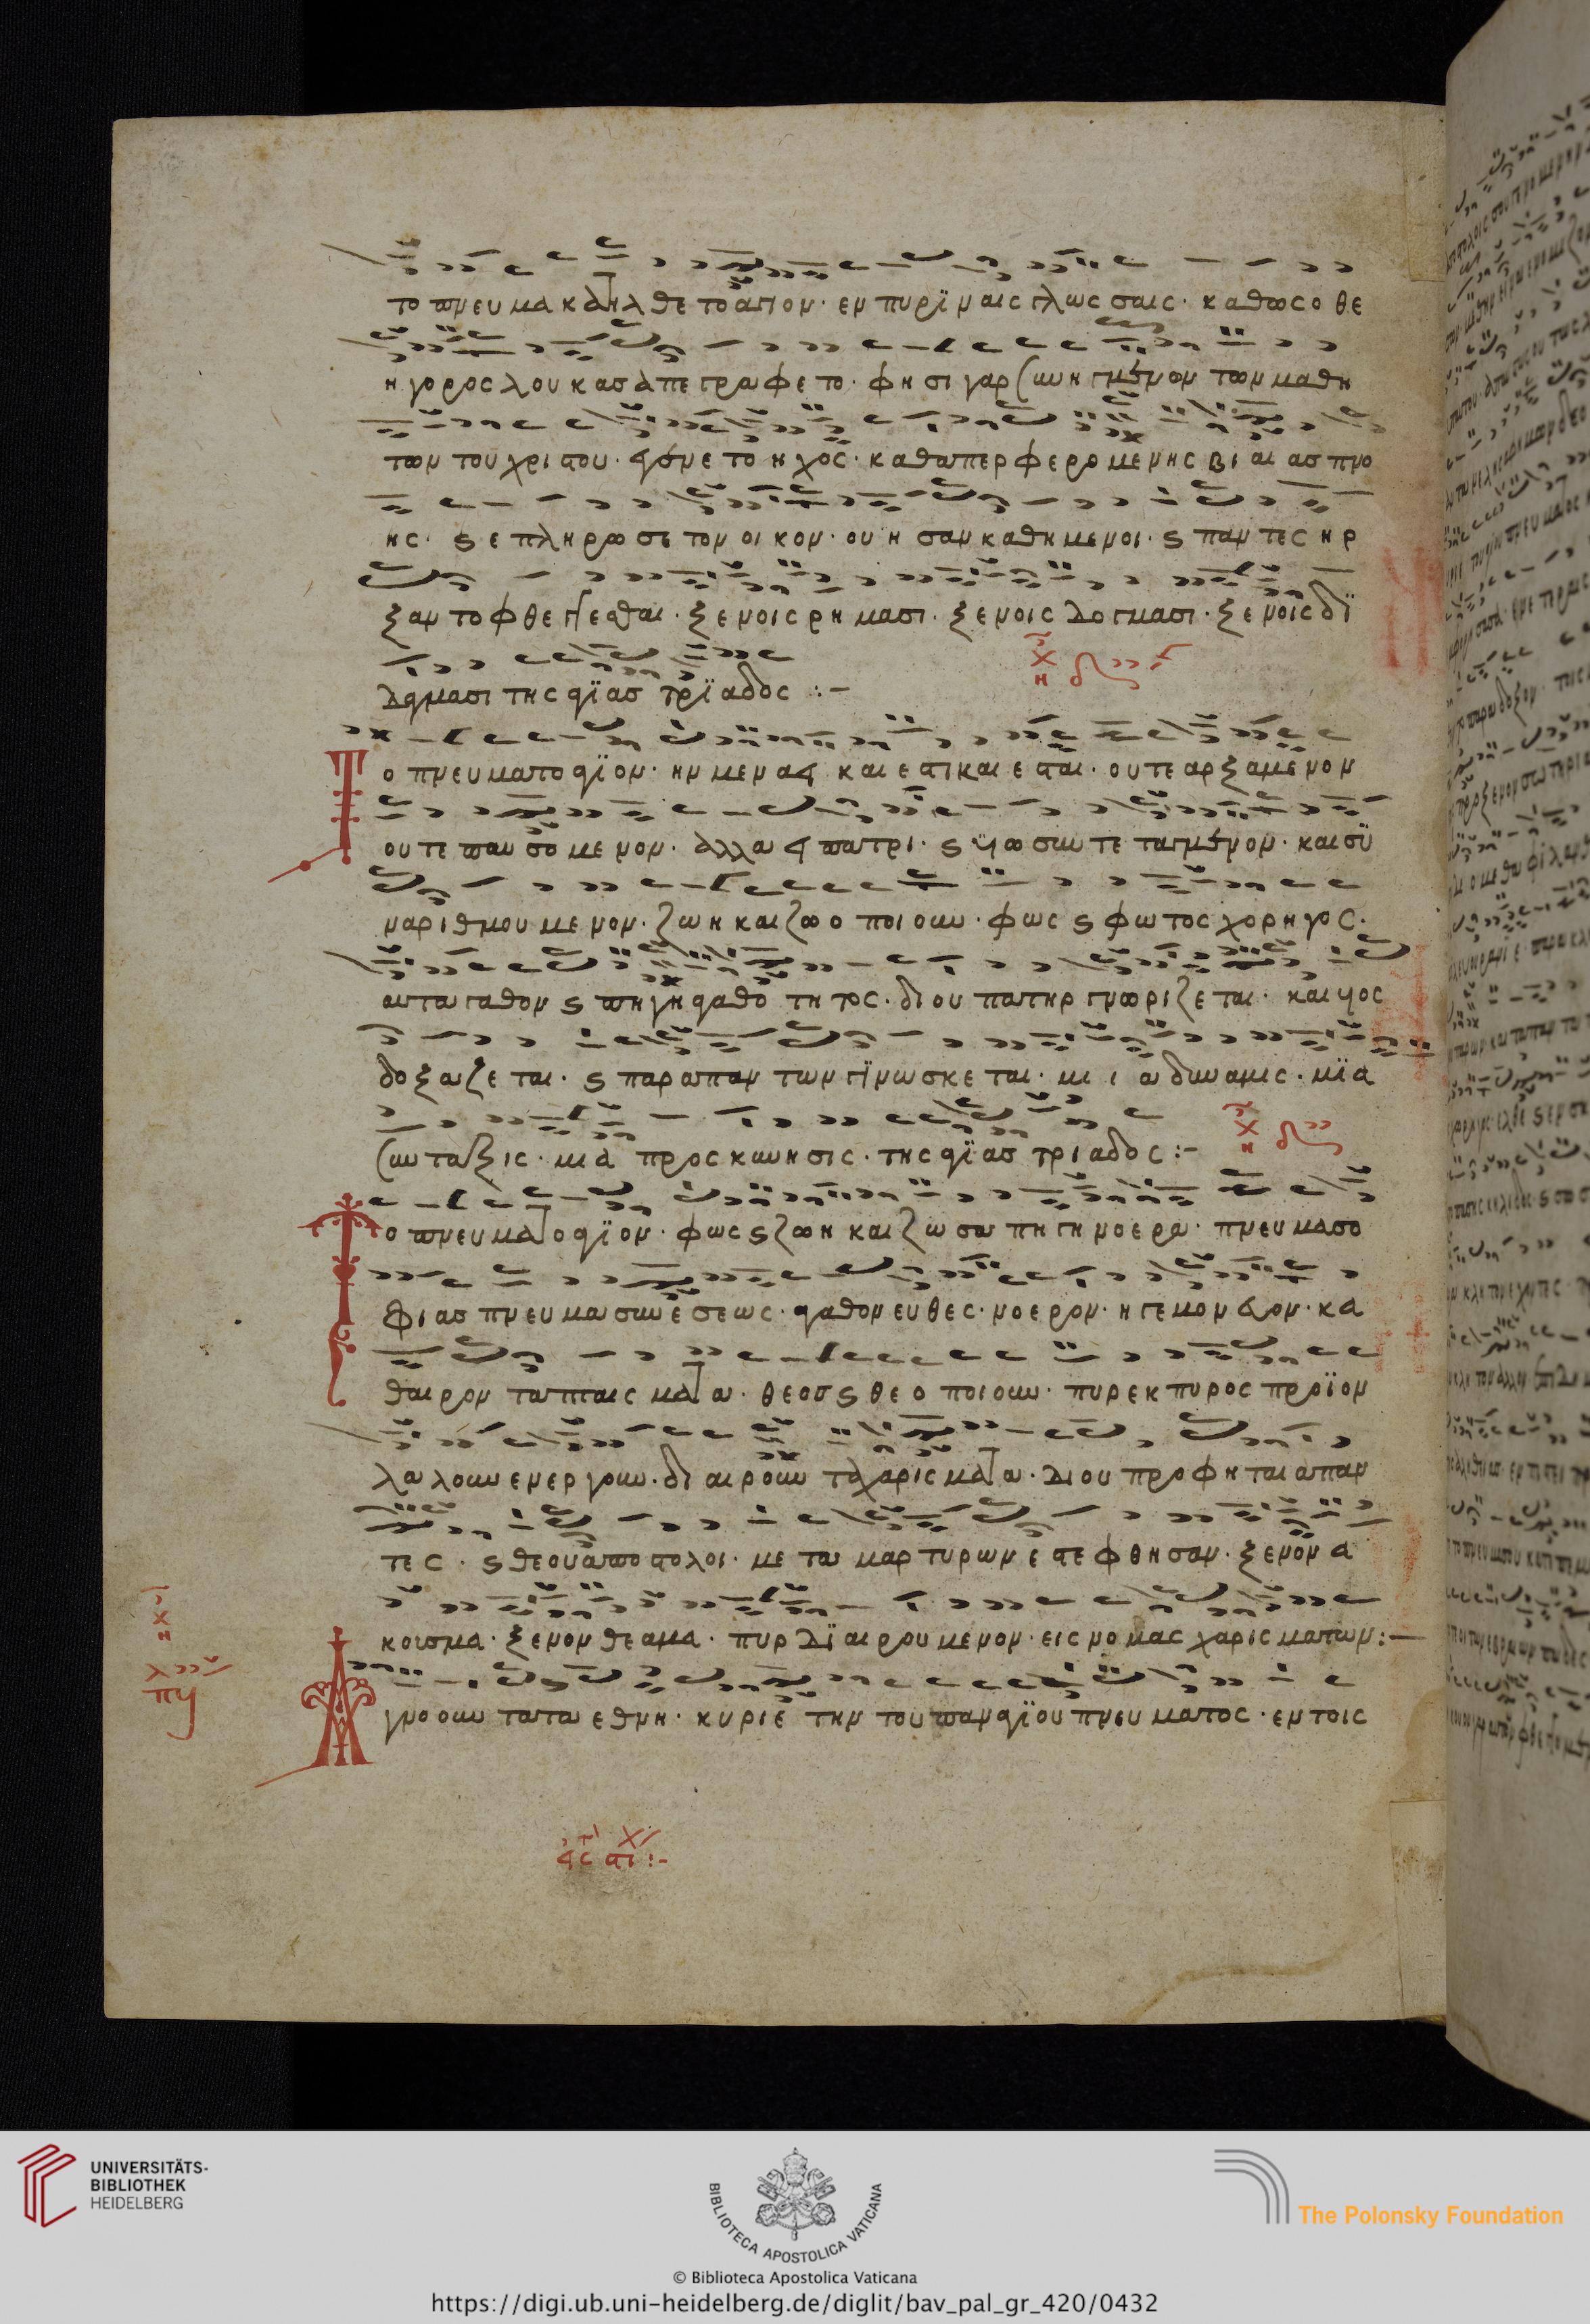 το πνευμα κατηλθε το αγιον· εν πυρϊναις γλωσσαις· καθως ο θε
ηγορος λουκας απεγραφετο· φησι γαρ συνηγμενων των μαθη
των του χριστου· εγενετο ηχος· καθαπερ φερομενης βιαιας πνο
ης· ϛ επληρωσε τον οικον· ου ησαν καθημενοι· ϛ παντες ηρ
ξαντο φθεγγεσθαι· ξενοις ρημασι· ξενοις δογμασι· ξενοις δϊ
δαγμασι της αγϊας τρϊαδος :–
ο πνευμα το αγϊον· ην μεν αει και εστι και εσται· ουτε αρξαμενον
ουτε παυσομενον· αλλ αει πατρι· ϛ υιω συντεταγμενον· και συ
ναριθμουμενον· ζωη και ζωοποιουν· φως ϛ φωτος χορηγος·
αυταγαθον ϛ πηγη αγαθοτητος· δι ου πατηρ γνωριζεται· και υιος
δοξαζεται· ϛ παρα παντων γϊνωσκεται· μια δυναμις· μϊα
συνταξις· μια προσκυνησις· της αγϊας τριαδος :–
Το πνευμα το αγϊον· φως ϛ ζωη και ζωσα πηγη νοερα· πνευμα σο
φιας πνευμα συνεσεως· αγαθον ευθες· νοερον· ηγεμονευον· κα
θαιρον τα πταισματα· θεος ϛ θεοποιουν· πυρ εκ πυρος προϊον
λαλουν ενεργουν· διαιρουν τα χαρισματα· δι ου προφηται απαν
τες· ϛ θεου αποστολοι· μετα μαρτυρων εστεφθησαν· ξενον α
κουσμα· ξενον θεαμα· πυρ δϊαιρουμενον· εις νομας χαρισματων :–
Αγνοουν τα τα εθνη· κυριε την του παναγϊου πνευματος· εν τοις
UNIVERSITÄTS-
BIBLIOTHEK
HEIDELBERG
BIBLIOTECA APOSTOLICA VATICANA
The Polonsky Foundation
© Biblioteca Apostolica Vaticana
https://digi.ub.uni-heidelberg.de/diglit/bav_pal_gr_420/0432